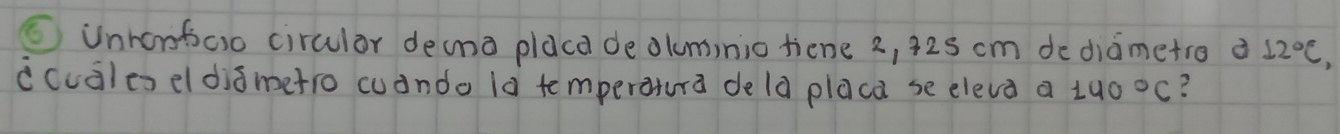 ⑥ Un orificio circular de una placa de aluminio tiene 2,725 cm de diámetro a 12°C,
¿cuál es el diámetro cuando la temperatura de la placa se eleva a 140 °C?